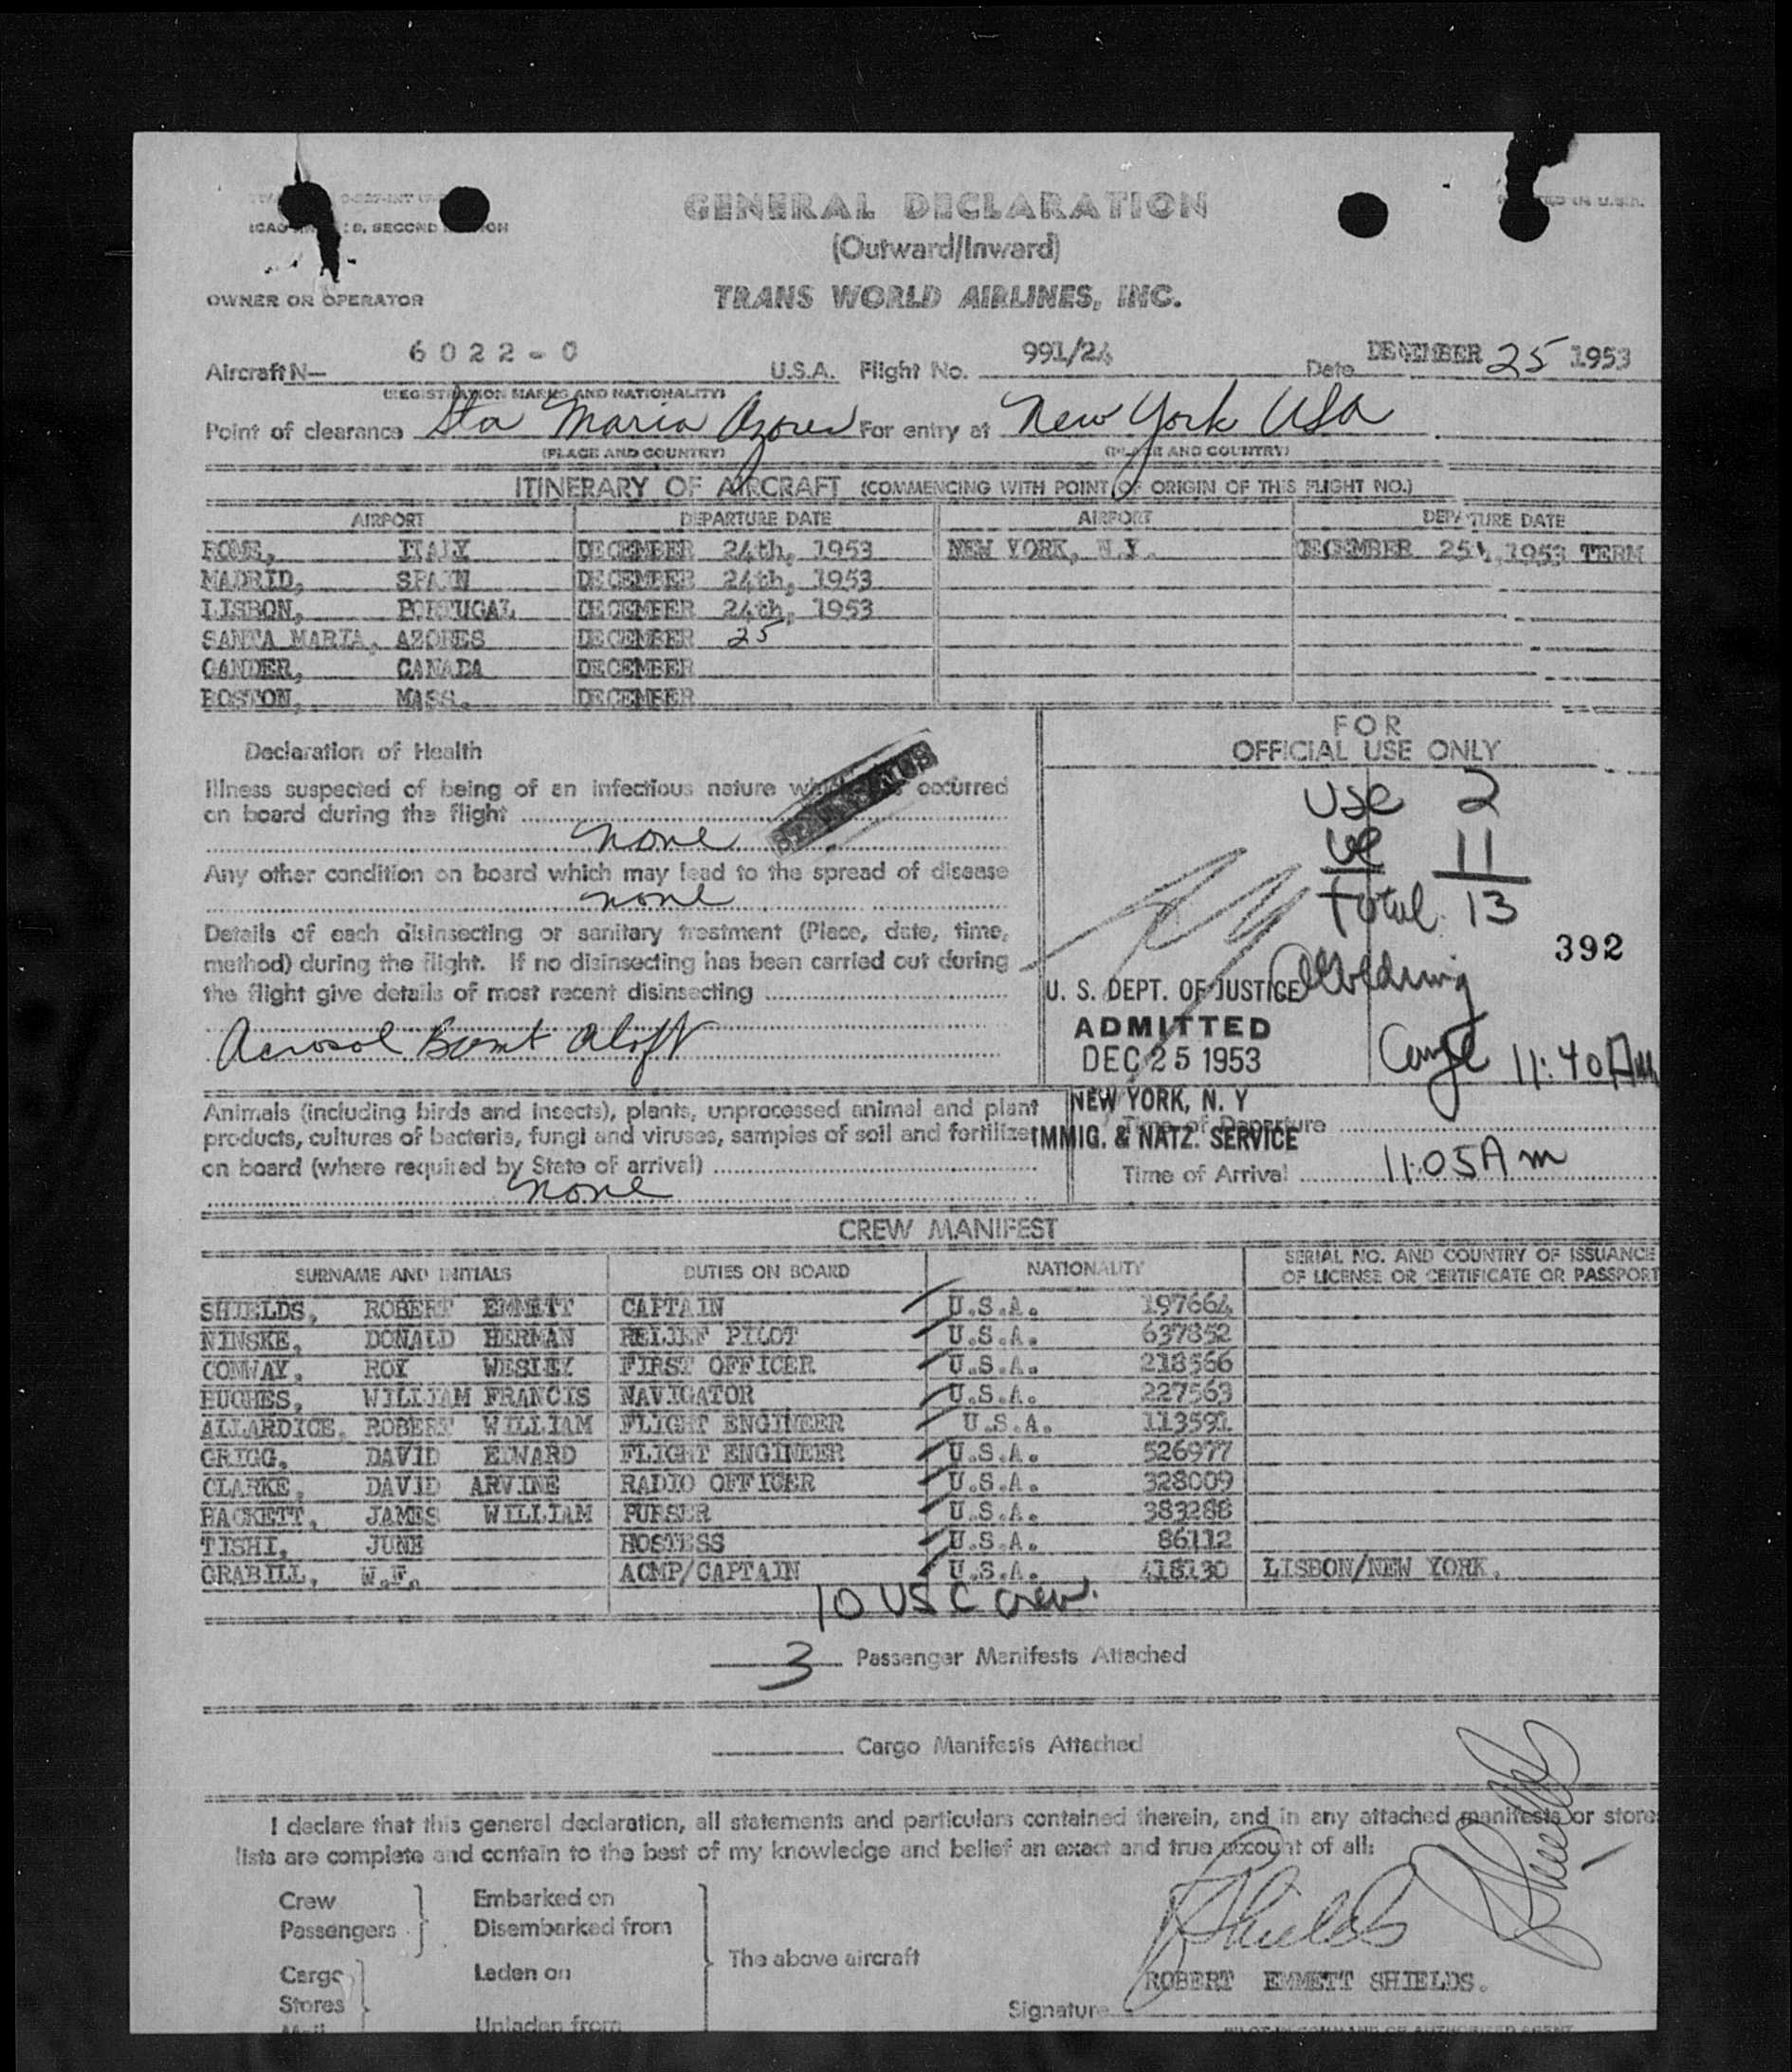 GENERAL DECLARATION
(Outward/Inward)
OWNER OR OPERATOR TRANS WORLD AIRLINES, INC.
Aircraft N— 6022-C U.S.A. Flight No. 991/24 Date DECEMBER 25 1953
(REGISTRATION MARKS AND NATIONALITY)
Point of clearance Sta Maria Azores For entry at New York USA
(PLACE AND COUNTRY) (PLACE AND COUNTRY)
ITINERARY OF AIRCRAFT (COMMENCING WITH POINT OF ORIGIN OF THIS FLIGHT NO.)
AIRPORT DEPARTURE DATE AIRPORT DEPARTURE DATE
ROME, ITALY DECEMBER 24th, 1953 NEW YORK, N.Y. DECEMBER 25, 1953 TERM
MADRID, SPAIN DECEMBER 24th, 1953
LISBON, PORTUGAL DECEMBER 24th, 1953
SANTA MARIA, AZORES DECEMBER 25
GANDER, CANADA DECEMBER
BOSTON, MASS. DECEMBER
Declaration of Health
Illness suspected of being of an infectious nature which has occurred
on board during the flight
none
Any other condition on board which may lead to the spread of disease
none
Details of each disinsecting or sanitary treatment (Place, date, time,
method) during the flight. If no disinsecting has been carried out during
the flight give details of most recent disinsecting
Aerosol Bomb Aloft
FOR
OFFICIAL USE ONLY
USC 2
11
Total 13
392
U. S. DEPT. OF JUSTICE
ADMITTED
DEC 25 1953
NEW YORK, N. Y
IMMIG. & NATZ. SERVICE
11:40 AM
Animals (including birds and insects), plants, unprocessed animal and plant
products, cultures of bacteria, fungi and viruses, samples of soil and fertilizer
on board (where required by State of arrival)
none
Time of Departure
Time of Arrival 11:05 Am
CREW MANIFEST
SURNAME AND INITIALS DUTIES ON BOARD NATIONALITY SERIAL NO. AND COUNTRY OF ISSUANCE
OF LICENSE OR CERTIFICATE OR PASSPORT
SHIELDS, ROBERT EMMETT CAPTAIN U.S.A. 197664
NINSKE, DONALD HERMAN RELIEF PILOT U.S.A. 637852
CONWAY, ROY WESLEY FIRST OFFICER U.S.A. 218566
HUGHES, WILLIAM FRANCIS NAVIGATOR U.S.A. 227563
ALLARDICE, ROBERT WILLIAM FLIGHT ENGINEER U.S.A. 113591
GRIGG, DAVID EDWARD FLIGHT ENGINEER U.S.A. 526977
CLARKE, DAVID ARVINE RADIO OFFICER U.S.A. 328009
HACKETT, JAMES WILLIAM PURSER U.S.A. 383288
TISHI, JUNE HOSTESS U.S.A. 86112
GRABILL, W.F. ACMP/CAPTAIN U.S.A. 418130 LISBON/NEW YORK.
10 USC crew.
3 Passenger Manifests Attached
Cargo Manifests Attached
I declare that this general declaration, all statements and particulars contained therein, and in any attached manifests or stores
lists are complete and contain to the best of my knowledge and belief an exact and true account of all:
Crew Embarked on
Passengers Disembarked from
The above aircraft
Cargo Laden on
Stores
Mail Unladen from
RShields
ROBERT EMMETT SHIELDS.
Signature